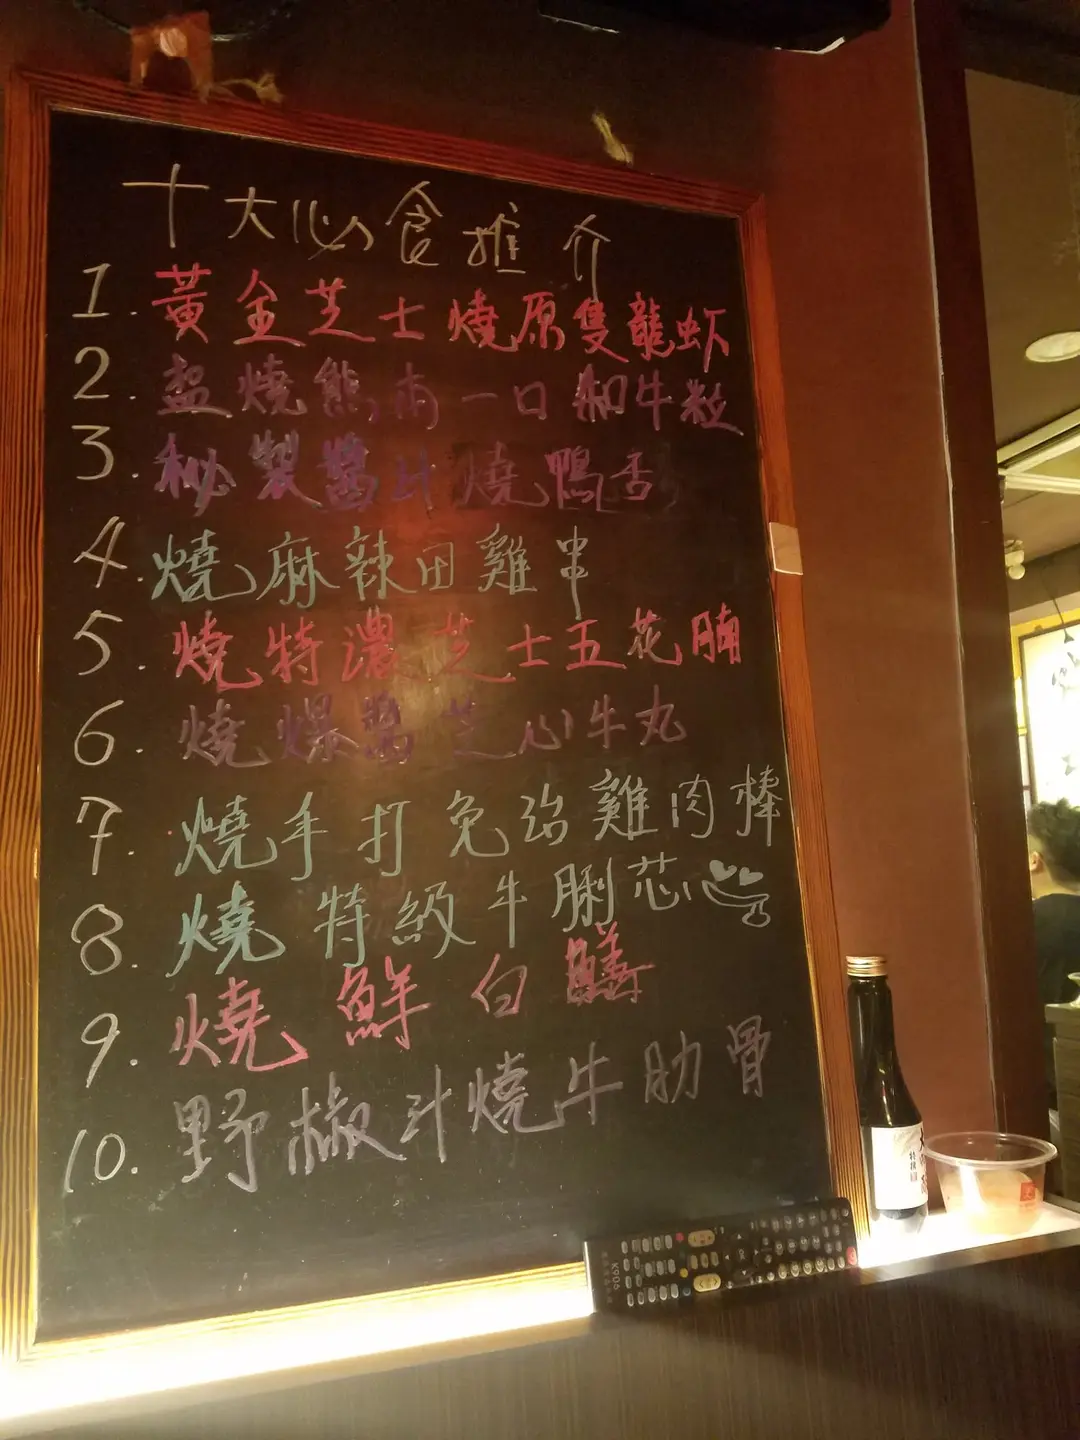 十大必食推介
1. 黃金芝士燒原隻龍蝦
2. 盐燒熊本一口和牛粒
3. 秘製醬汁燒鴨舌
4. 燒麻辣田雞串
5. 燒特濃芝士五花腩
6. 燒爆醬芝心牛丸
7. 燒手打免治雞肉棒
8. 燒特級牛脷芯
9. 燒鮮白鱔
10. 野椒汁燒牛肋骨
K906